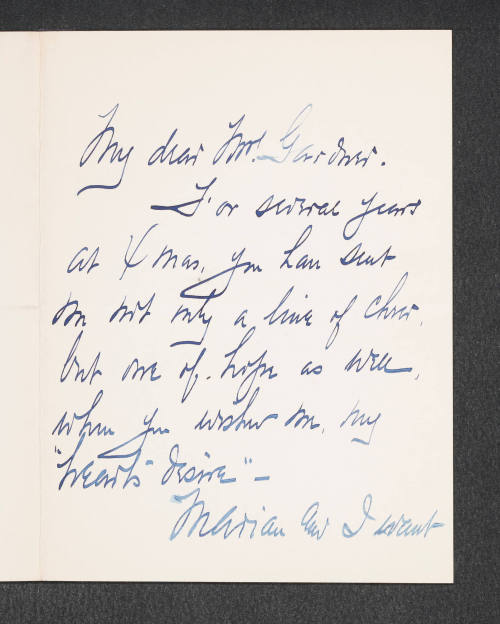 My dear Mrs. Gardner.
For several years
at Xmas, you have sent
me not only a line of cheer,
but one of hope as well,
when you wished me, my
"heart's desire" -
Marian and I want